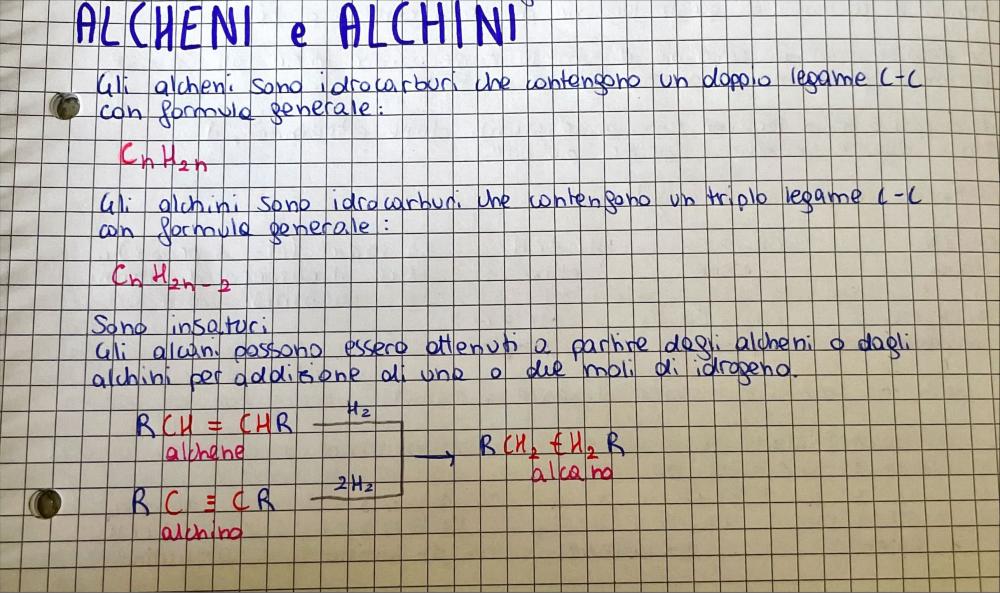 ALCHENI e ALCHINI
Gli alcheni sono idrocarburi che contengono un doppio legame C-C
con formula generale:
CnH2n
Gli alchini sono idrocarburi che contengono un triplo legame C-C
con formula generale:
CnH2n-2
Sono insaturi
Gli alcani possono essere ottenuti a partire dagli alcheni o dagli
alchini per addizione di una o due moli di idrogeno.
RCH = CHR H2
alchene
RCH2 CH2R
alcano
R C ≡ CR 2H2
alchino